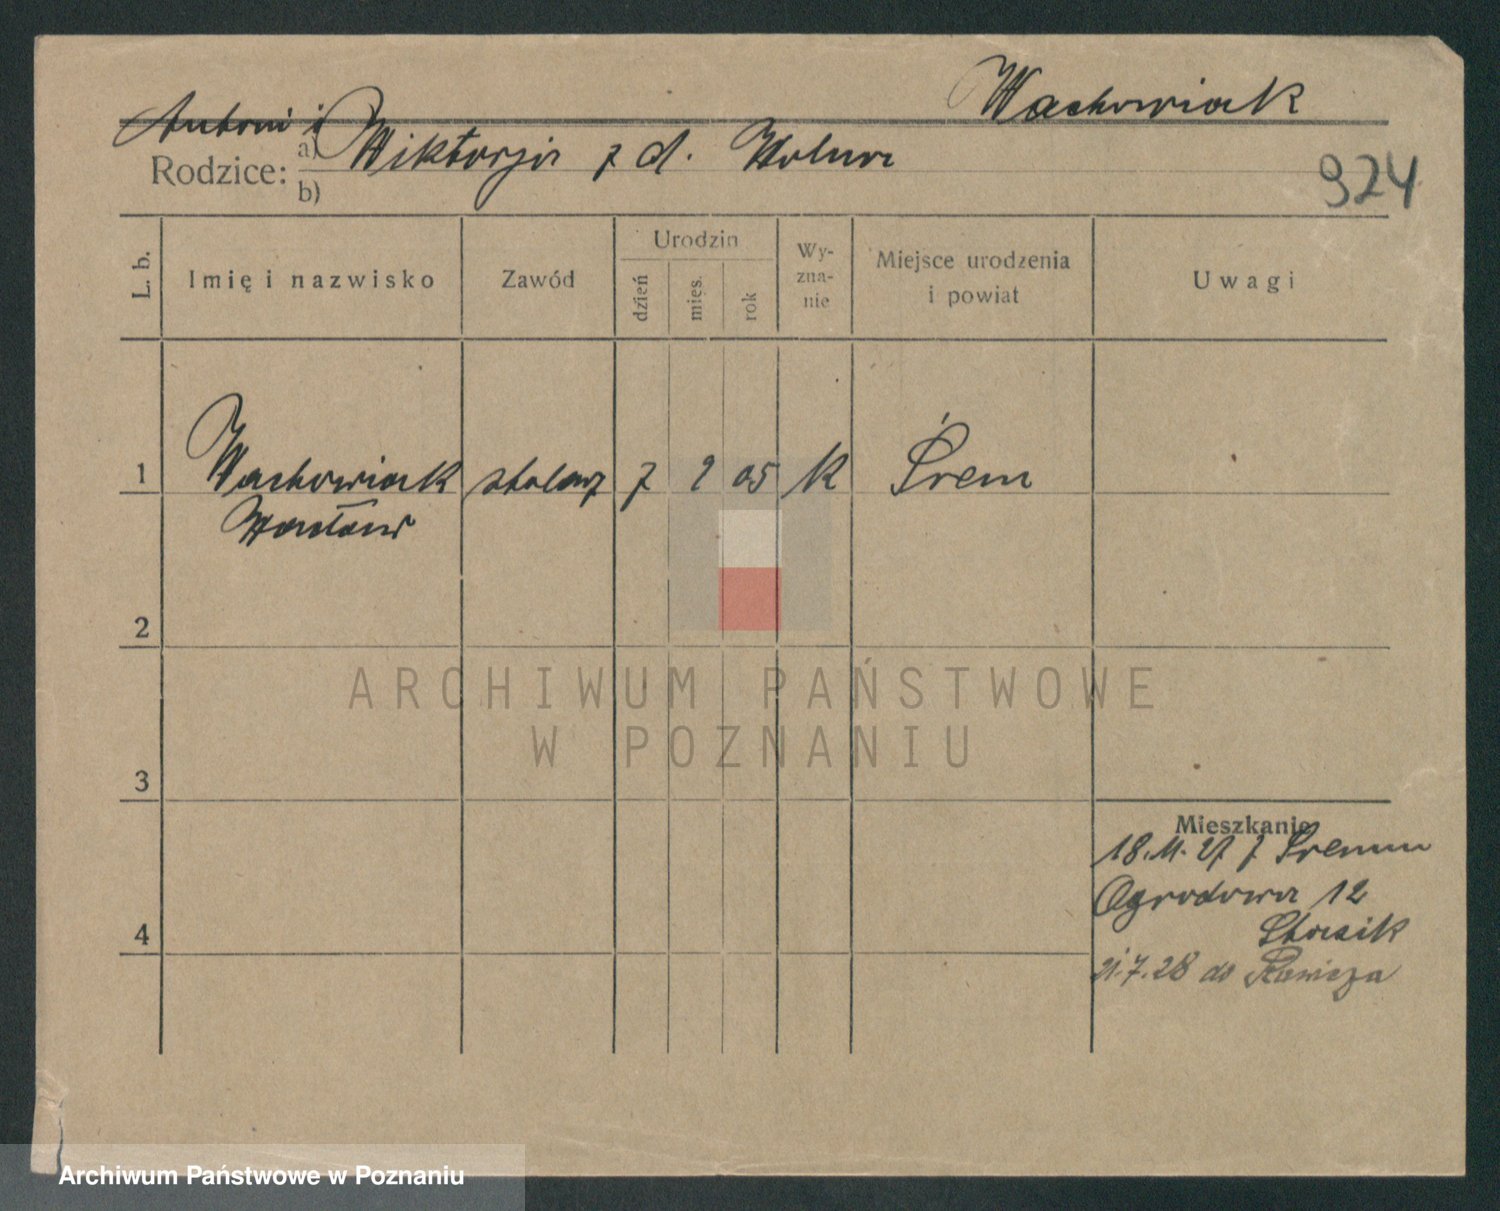 Wachowiak
Antoni i
Rodzice: a) Wiktorja z d. Wolna
b)
924
L. b.
Imię i nazwisko
Zawód
Urodzin
dzień
mięs.
rok
Wy-
zna-
nie
Miejsce urodzenia
i powiat
Uwagi
1 Wachowiak stolarz 7 9 05 K Śrem
Wacław
2
ARCHIWUM PAŃSTWOWE
W POZNANIU
3
Mieszkanie
18.11.27 z Śremu
Ogrodowa 12
4
21.7.28 do Rawicza
Archiwum Państwowe w Poznaniu